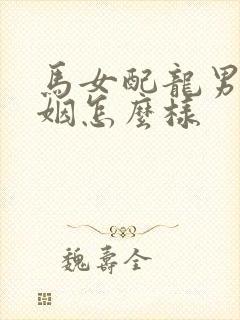 馬女配龍男
姻怎麼樣
魏壽全